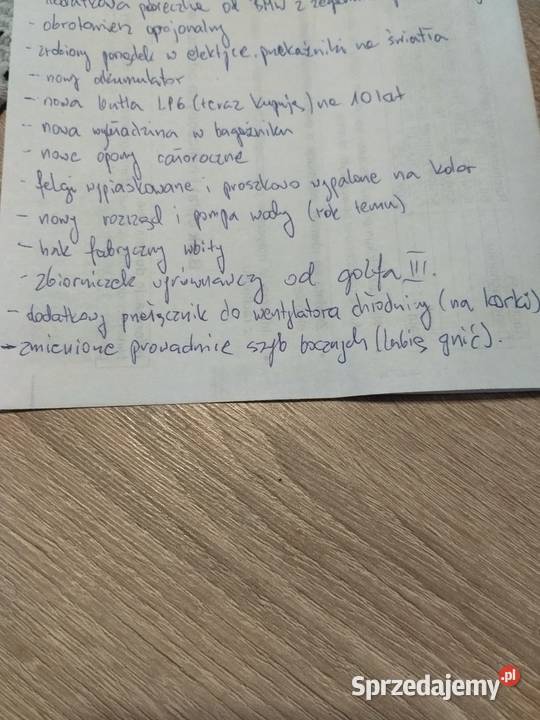 dodatkowa półeczka od BMW z zegarem
- obrotomierz opcjonalny
- zrobiony porządek w elektryce, przekaźniki na światła
- nowy akumulator
- nowa butla LPG (teraz kupuję) na 10 lat
- nowa wykładzina w bagażniku
- nowe opony całoroczne
- felgi wypiaskowane i proszkowo wypalone na kolor
- nowy rozrząd i pompa wody (rok temu)
- hak fabryczny wbity
- zbiorniczek wyrównawczy od golfa III.
- dodatkowy przełącznik do wentylatora chłodnicy (na korki)
- zmienione prowadnice szyb bocznych (lubię gnić).
Sprzedajemy.pl